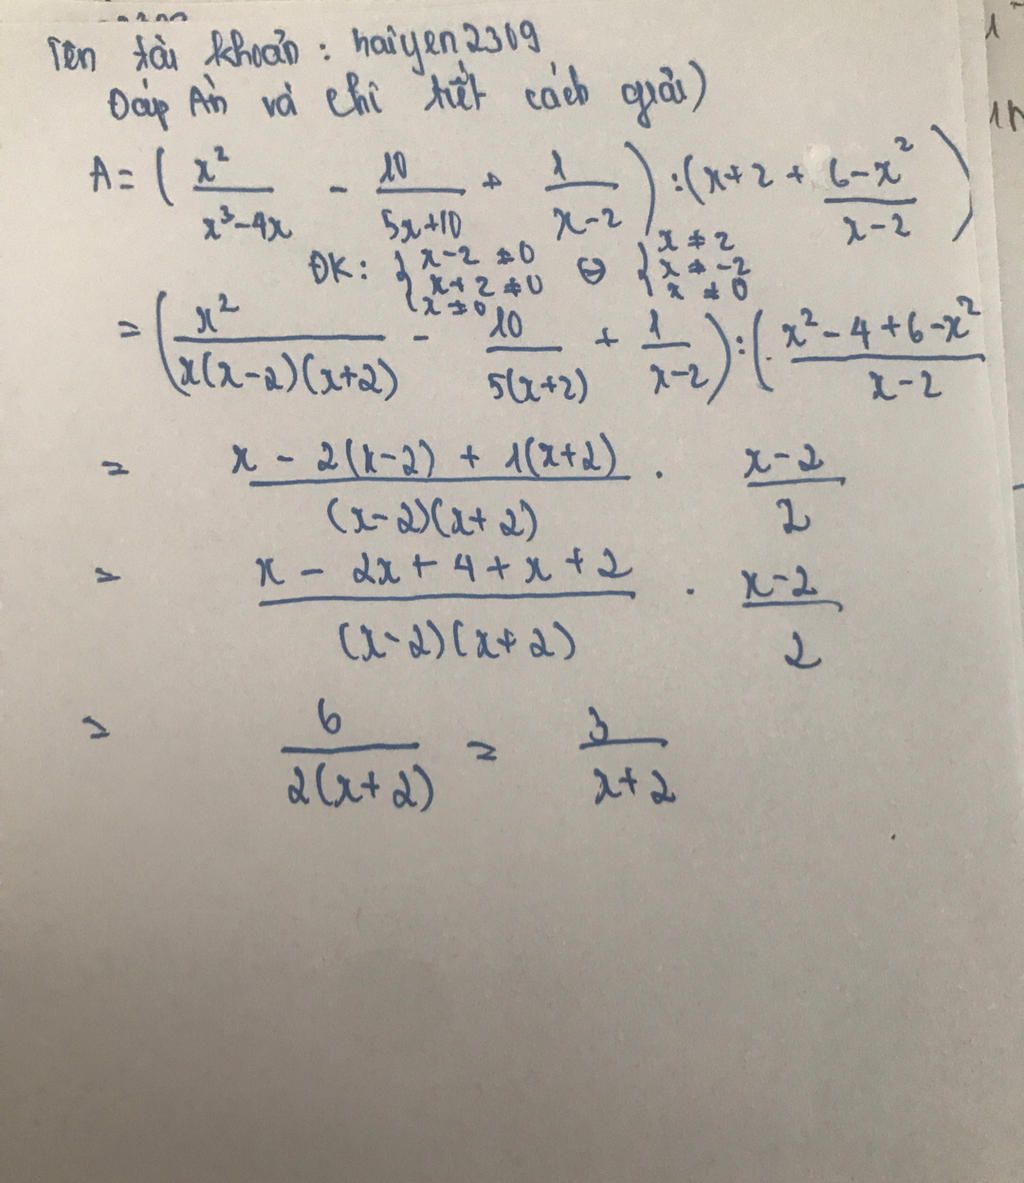 Tên tài khoản : haiyen2309
Đáp Án và chi tiết cách giải)
A = ( x²/(x³-4x) - 10/(5x+10) + 1/(x-2) ) : (x+2 + (6-x²)/(x-2) )
ĐK: { x-2 ≠ 0 ; x+2 ≠ 0 ; x ≠ 0 ⇔ { x ≠ 2 ; x ≠ -2 ; x ≠ 0
= ( x²/(x(x-2)(x+2)) - 10/(5(x+2)) + 1/(x-2) ) : ( (x²-4+6-x²)/(x-2)
= (x - 2(x-2) + 1(x+2))/((x-2)(x+2)) . (x-2)/2
= (x - 2x + 4 + x + 2)/((x-2)(x+2)) . (x-2)/2
= 6/(2(x+2)) = 3/(x+2)